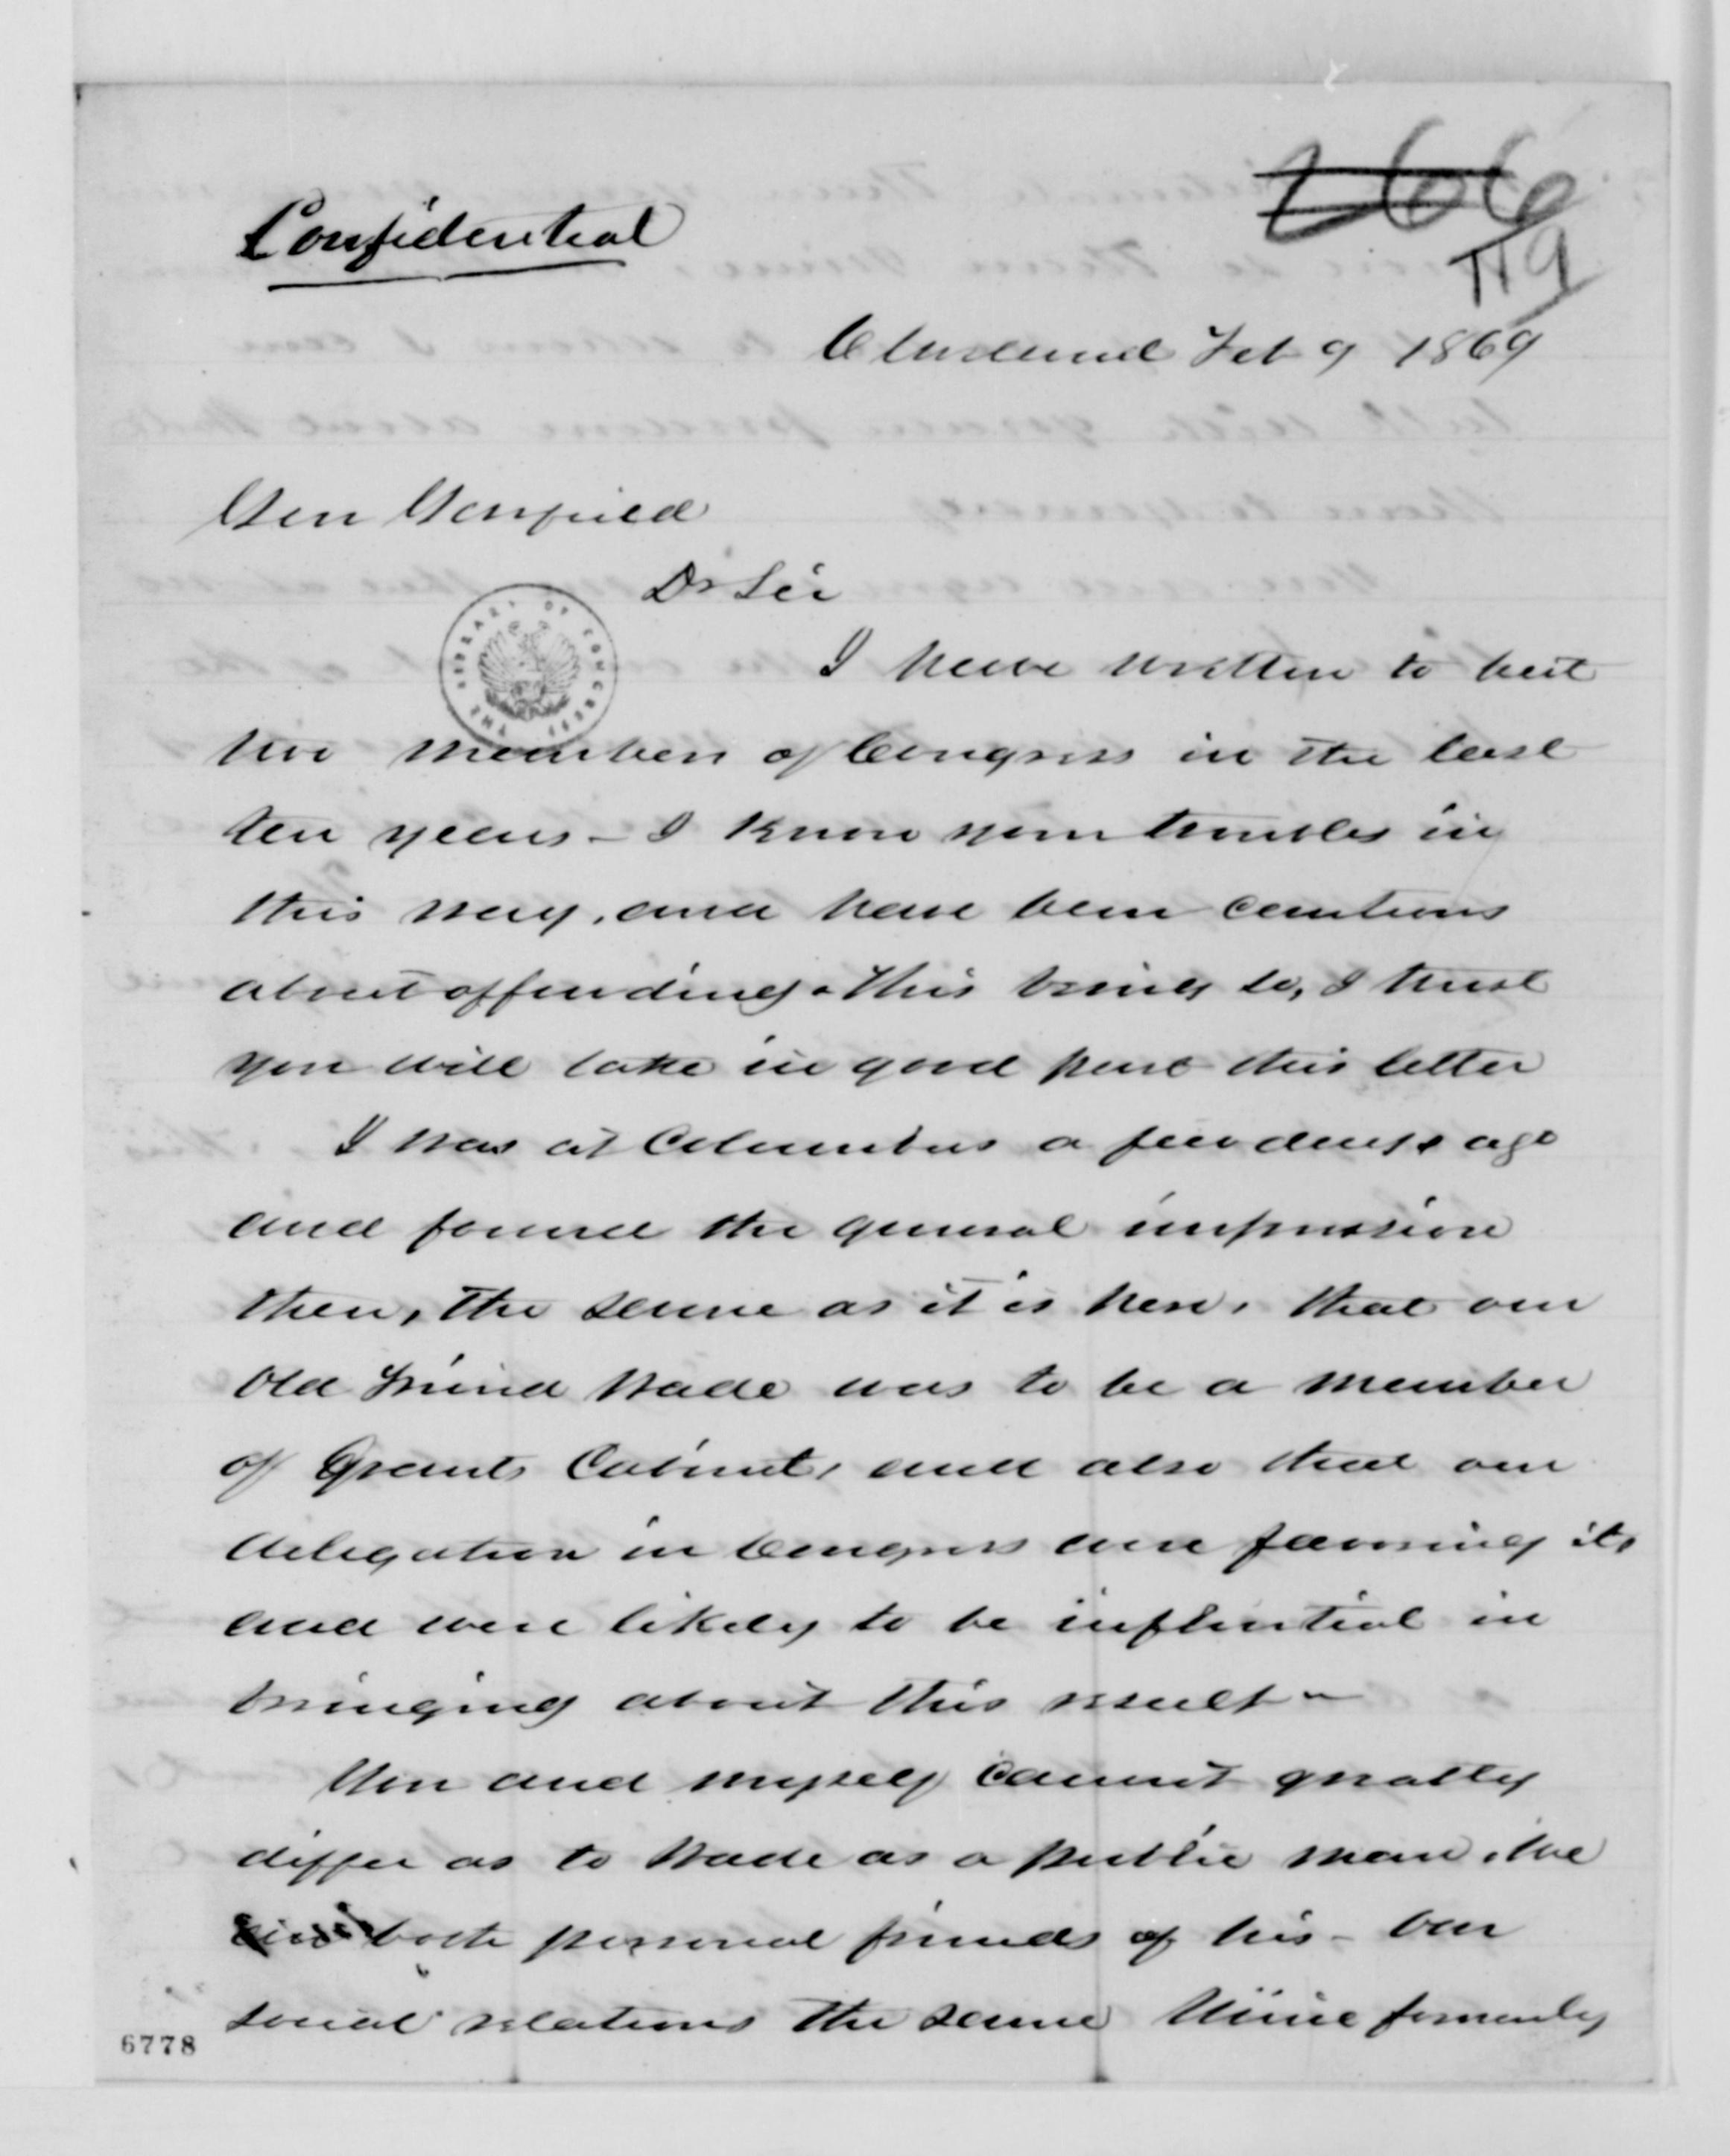 Confidential
266
119
Cleveland Feb 9 1869
Gen Garfield
Dr Sir
THE LIBRARY OF CONGRESS
I have written to but
two members of Congress in the last
ten years - I know your troubles in
this way, and have been cautious
about offending. This being so, I trust
you will take in good part this letter
I was at Columbus a few days ago
and found the general impression
there, the same as it is here, that our
old friend Wade was to be a member
of Grants Cabinet, and also that our
delegation in Congress were favoring it,
and were likely to be influential in
bringing about this result -
You and myself cannot greatly
differ as to Wade as a public man. We
both personal friends of his - Our
social relations the same Mine formerly
6778